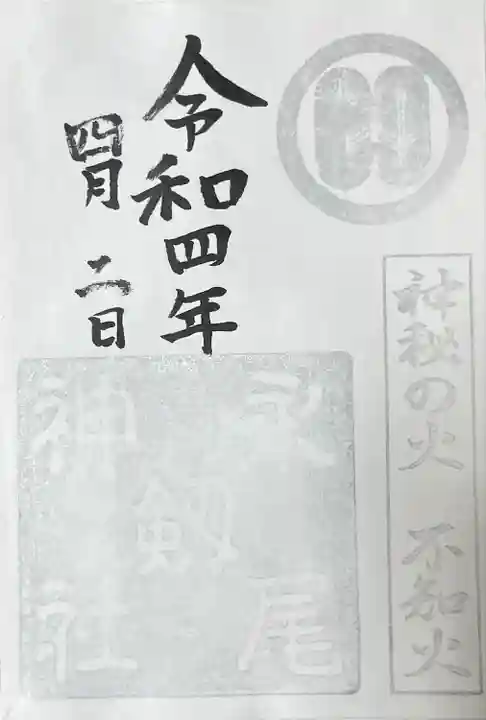 神秘の火 不知火
令和四年
四月 二日
永尾
剱
神社